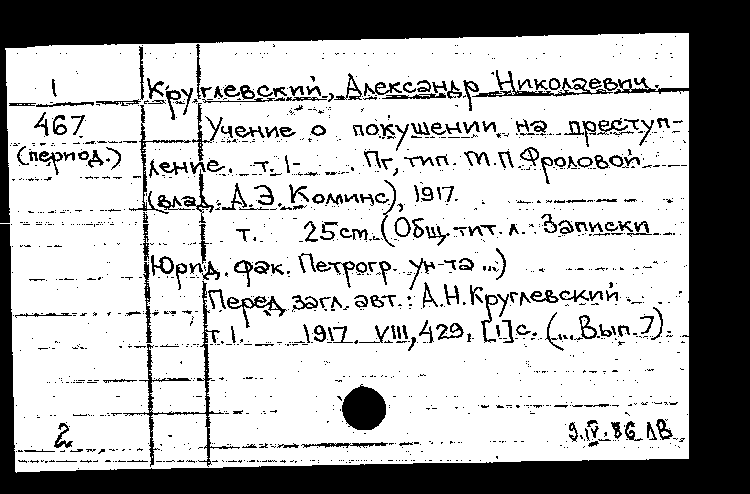 1 Круглевский, Александр Николаевич.
467 Учение о покушении на преступ-
(период.) ление. т. 1- . Пг, тип. М.П.Фроловой
(влад. А.Э.Коминс), 1917.
т. 25cm. (Общ. тит. л.: Записки
Юрид. фак. Петрогр. ун-та ...)
Перед загл. авт.: А.Н.Круглевский
т. 1. 1917. VIII, 429, [1] с. (... Вып. 7).
9.IV.86 ЛВ